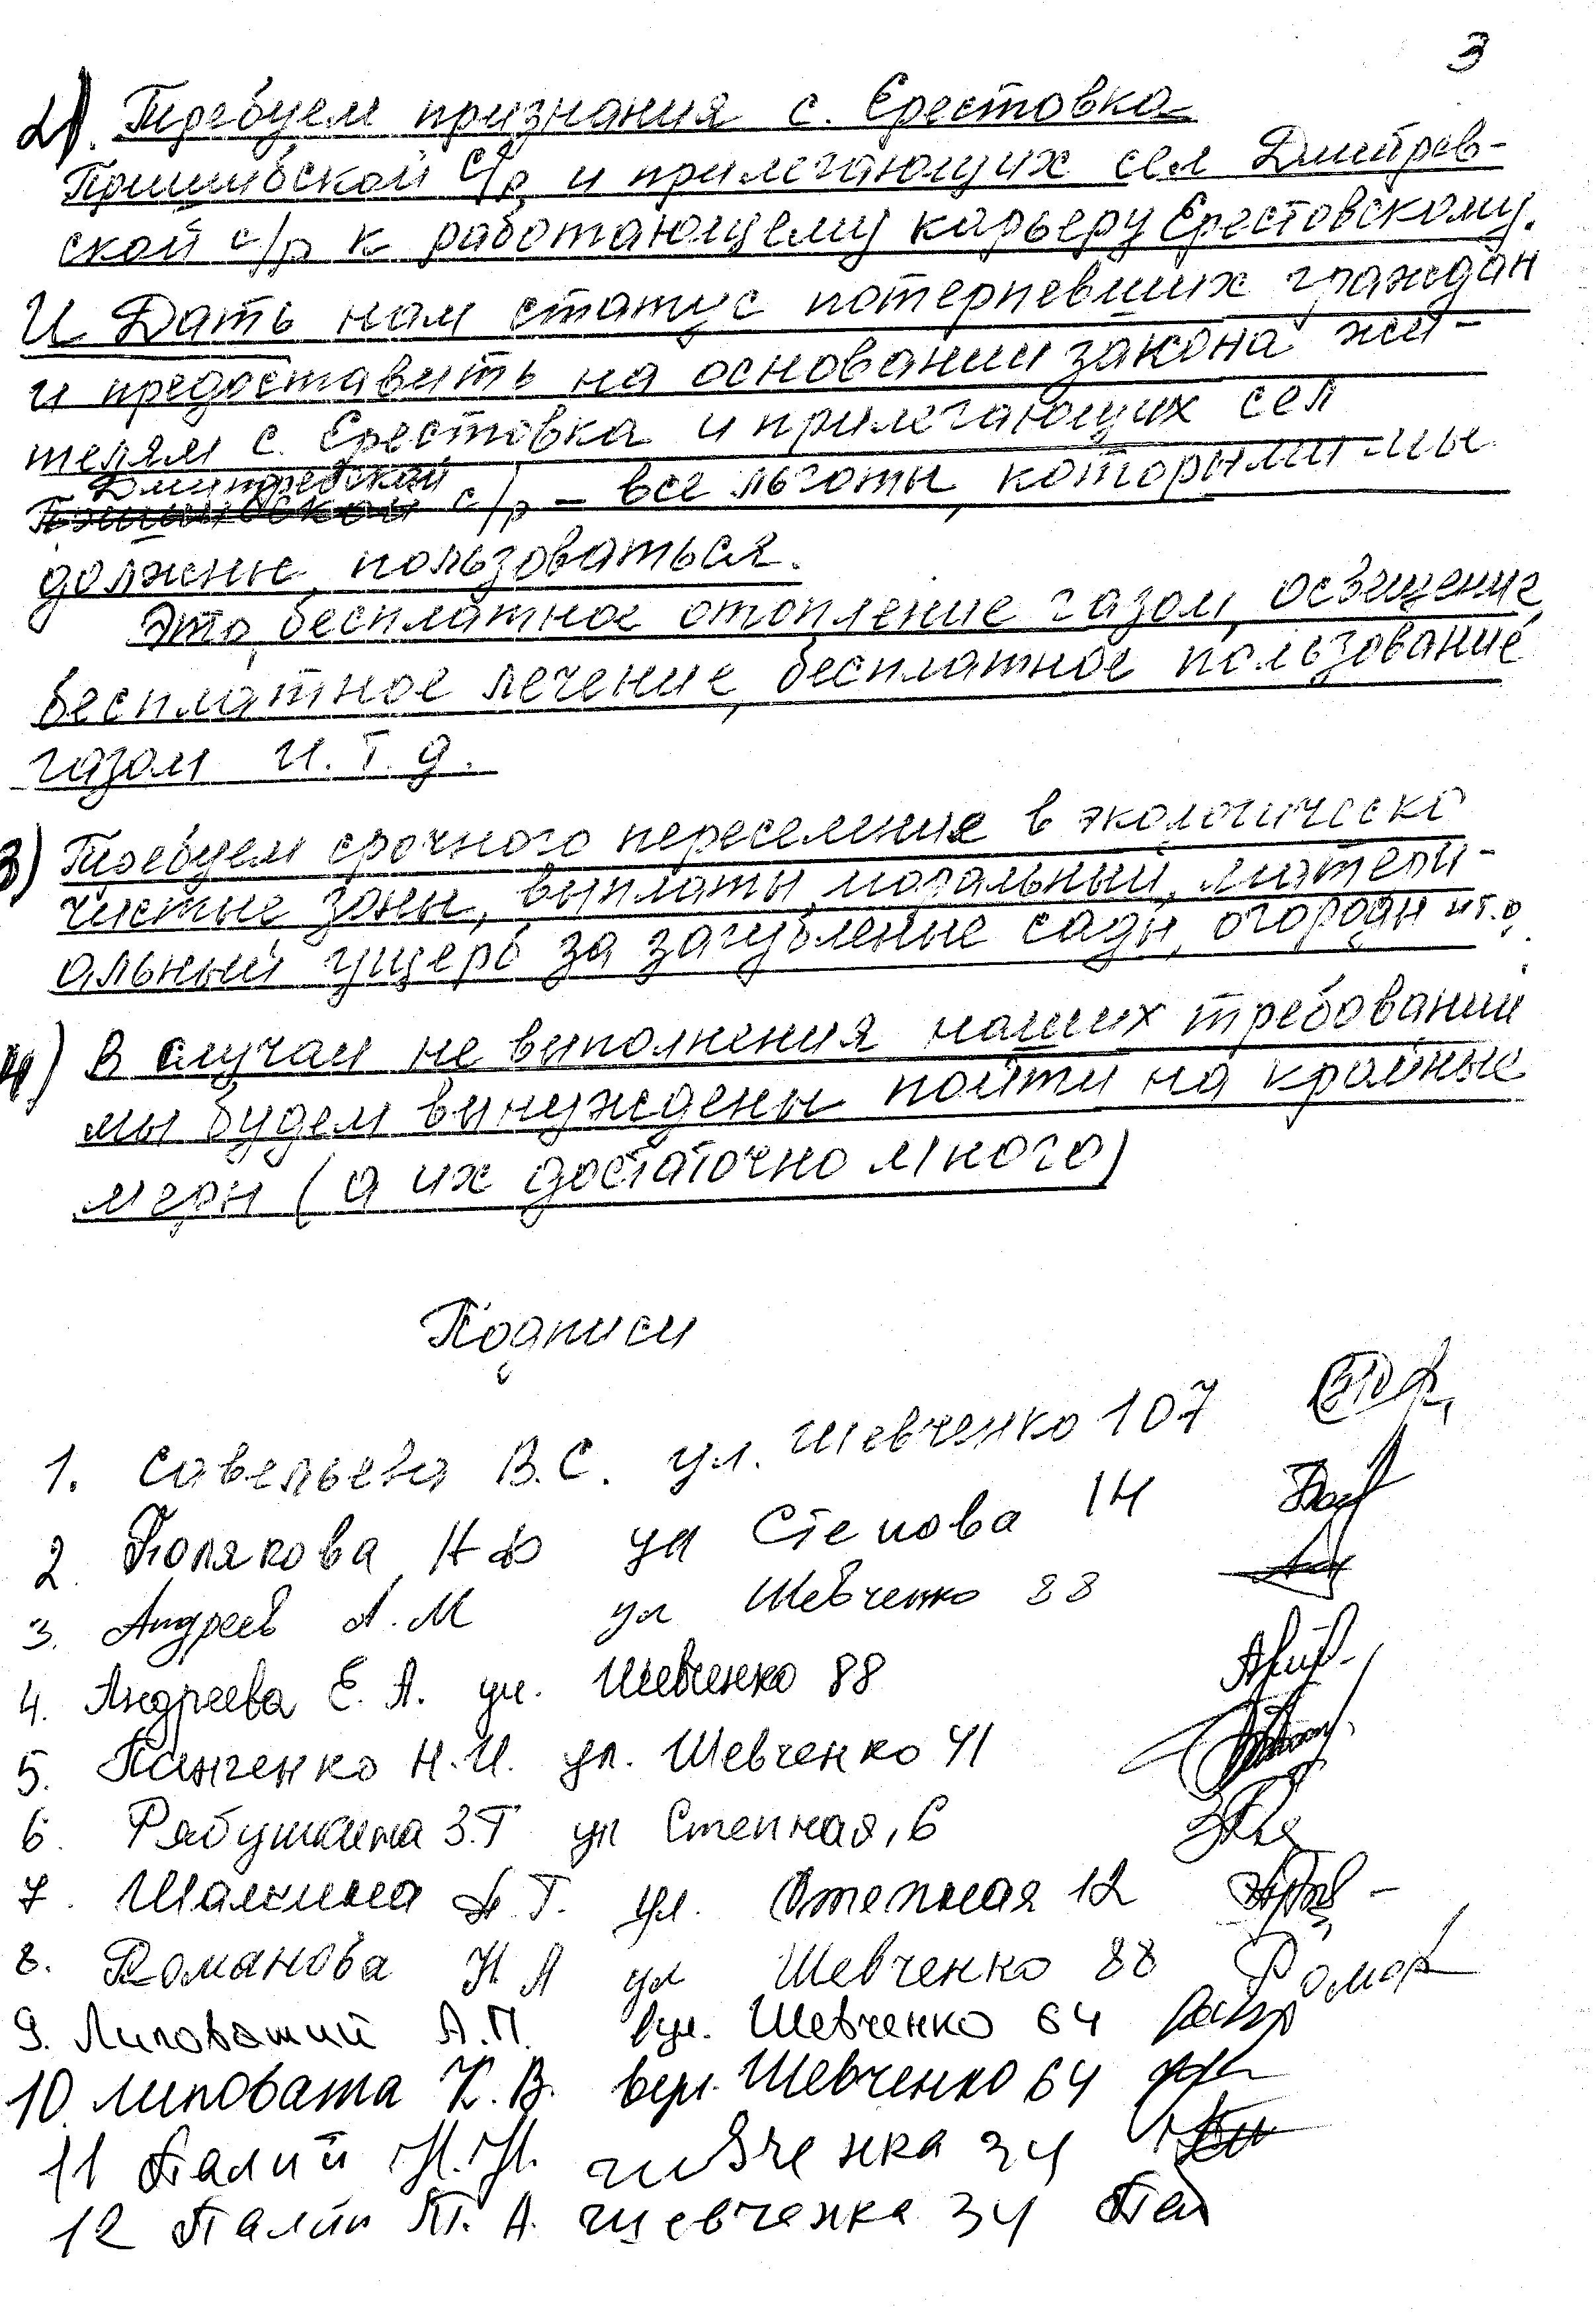 3
2). Требуем признания с. Ерестовка
Пришибской с/р и прилегающих сел Дмитрев-
ской с/р к работающему карьеру Ерестовскому.
И Дать нам статус потерпевших граждан
и предоставить на основании закона жи-
телям с. Ерестовка и прилегающих сел
Дмитревской
Пришибской с/р - все льготы, которыми мы
должны пользоваться.
Это, бесплатное отопление газом, освещение,
бесплатное лечение, бесплатное пользование
газом и.т.д.
3) Требуем срочного переселение в экологическо
чистые зоны, выплаты моральный, матери-
альный ущерб за загубленые сады, огороды и т.д.
4) В случаи не выполнения наших требований
мы будем вынуждены пойти на крайные
меры (а их достаточно много)
Подписи
1. Савельева В.С. ул. Шевченко 107
2. Полякова Н Ф ул Степова 14
3. Андреев А.М ул Шевченко 88
4. Андреева Е.А. ул. Шевченко 88
5. Панченко Н.И. ул. Шевченко 41
6. Рябушкина З.Г ул Степная, 6
7. Шалкина Г. ул. Степная 12
8. Романова Н А ул Шевченко 88 Роман
9. Липоватий А.П. вул. Шевченко 64
10. Липовата К.В. вул. Шевченко 64
11 Палий Н.Н. 34
12 Палій Т.А. шевченка 34 Пал